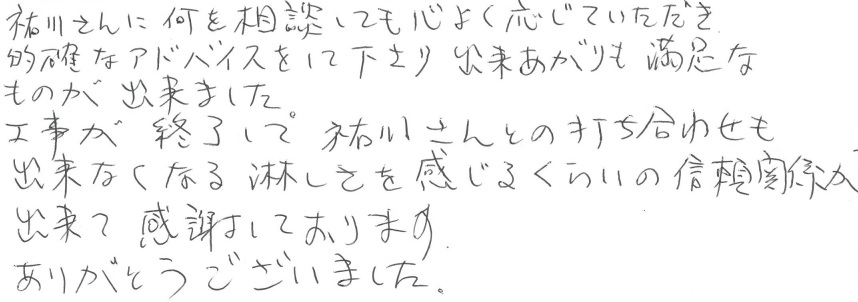 祐川さんに何を相談しても心よく応じていただき
的確なアドバイスをして下さり出来あがりも満足な
ものが出来ました。
工事が終了して祐川さんとの打ち合わせも
出来なくなる淋しさを感じるくらいの信頼関係が
出来て感謝しております
ありがとうございました。